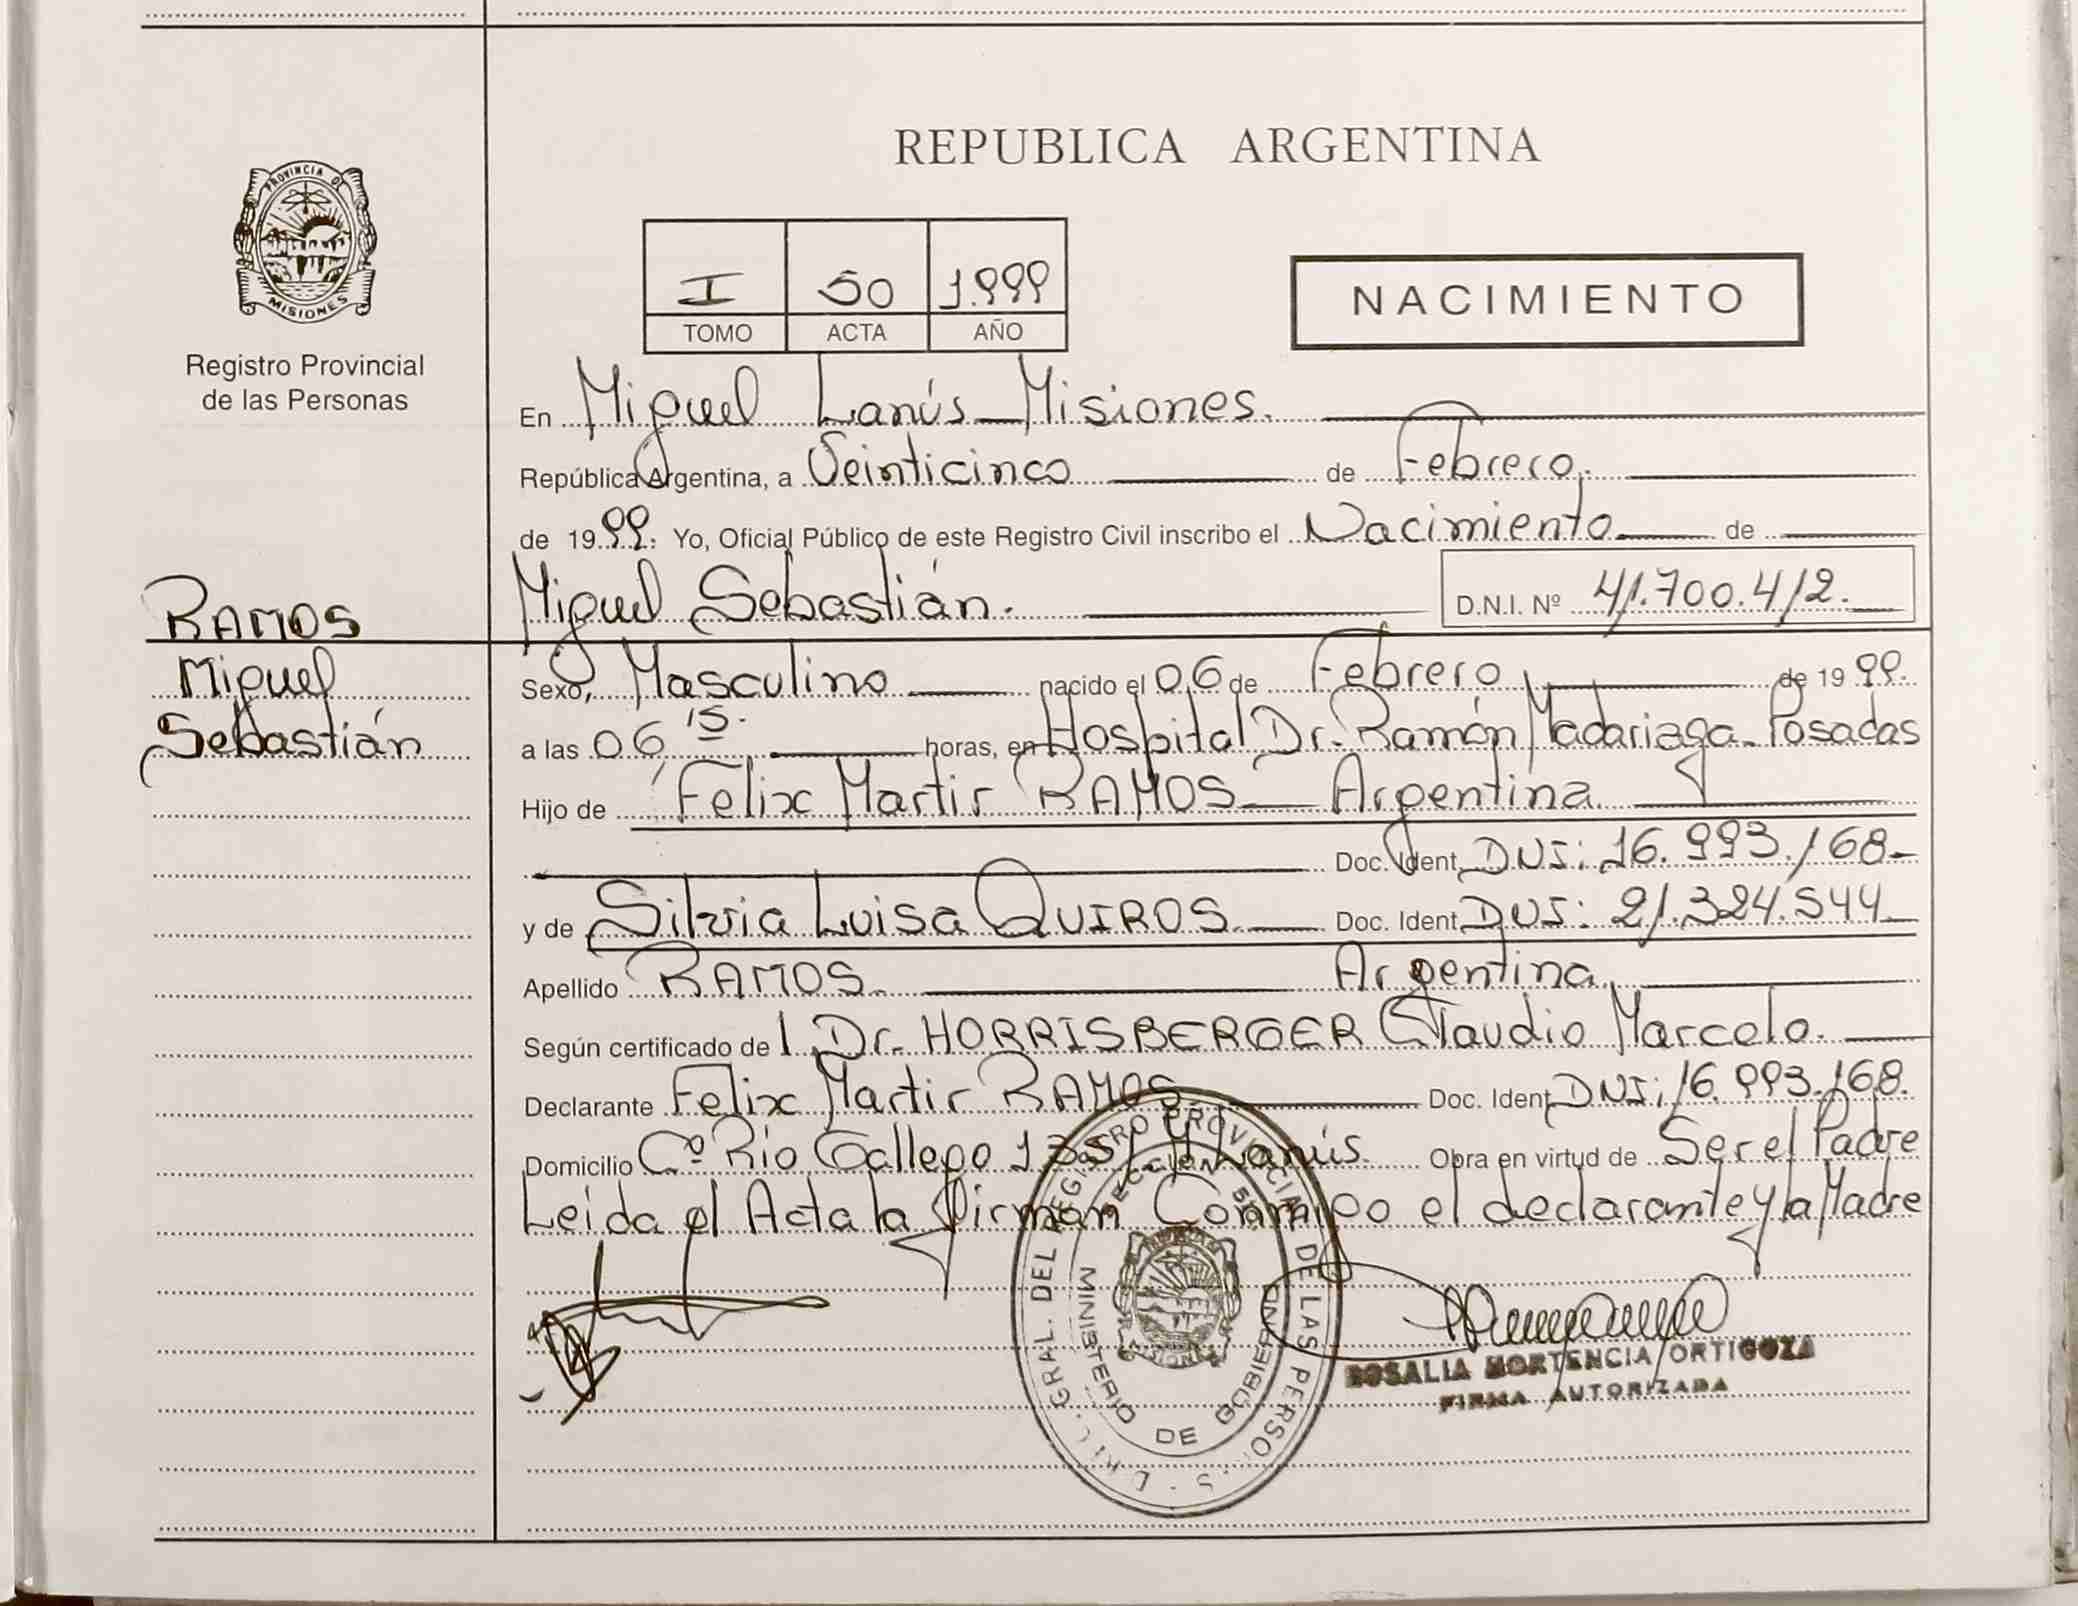 PROVINCIA DE
MISIONES
Registro Provincial
de las Personas
REPUBLICA ARGENTINA
I 50 1.999
TOMO ACTA AÑO
NACIMIENTO
En Miguel Lanús_Misiones.
República Argentina, a Veinticinco de Febrero.
de 1999. Yo, Oficial Público de este Registro Civil inscribo el Nacimiento de
Miguel Sebastián. D.N.I. Nº 41.700.412.
RAMOS
Miguel
Sebastián
Sexo, Masculino nacido el 06 de Febrero de 1999.
a las 06 15. horas, en Hospital Dr. Ramón Madariaga_Posadas
Hijo de Felix Martir RAMOS_ Argentina
Doc. Ident. DNI: 16.993.168_
y de Silvia Luisa QUIROS. Doc. Ident. DNI: 21.324.544_
Apellido RAMOS. Argentina
Según certificado del Dr. HORRISBERGER Claudio Marcelo.
Declarante Felix Martir RAMOS Doc. Ident. DNI: 16.993.168.
Domicilio Cº Rio Gallego Lanús. Obra en virtud de Ser el Padre
Leida el Acta la firman Conmigo el declarante y la Madre
GRAL. DEL REGISTRO PROVINCIAL DE LAS PERSONAS
MINISTERIO DE GOBIERNO
MISIONES
ROSALIA HORTENCIA ORTIGOZA
FIRMA AUTORIZADA